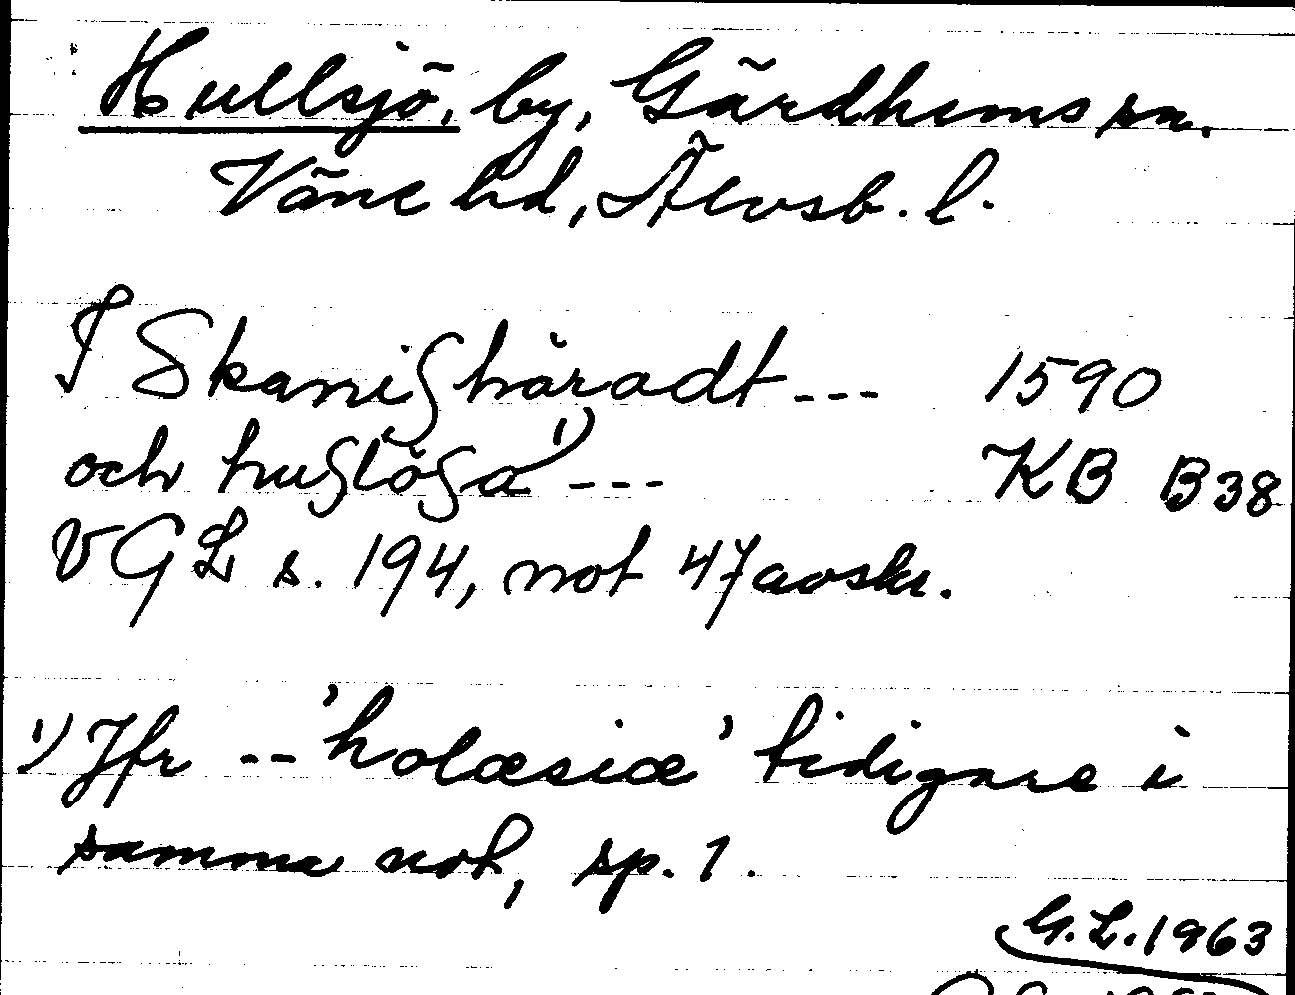 Hullsjö, by, Gärdhems sn.
Väne hd, Älvsb. l.
I Skaniſhäradt --- 1590
och huſlöſa 1) --- KB B38
VGL s. 194, not 47 avskr.
1) Jfr -- 'holæsiæ' tidigare i
samma not, sp. 1.
G.L. 1963